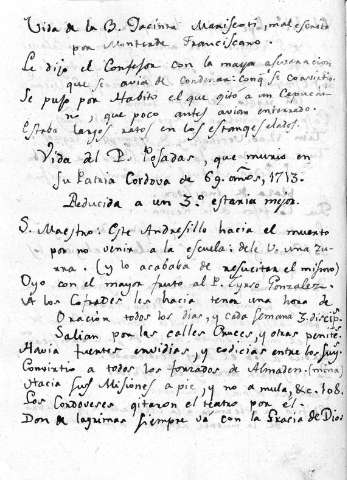 Vida de la B. Jacinta Mariscoti, mal escrita
por Monterde Franciscano.
Le dijo el Confesor con la mayor aseveracion
que se avia de condenar: conq. se convirtio.
Se puso por Habito el que qitó a un Capuchi-
no, que poco antes avian enterrado.
Estaba largos ratos en los estanqes elados.
Vida del P. Posadas, que murio en
su Patria Cordova de 69 años, 1713.
Reducida a un 3.º estaria mejor.
S. Maestro: Este Andresillo hacia el muerto
por no venir a la escuela: dele V. una zu-
rra. (y lo acababa de resucitar el mismo)
Oyo con el mayor fruto al P. Tyrso Gonzalez.
A los Cofrades les hacia tener una hora de
Oración todos los dias, y cada semana 3. discip.
Salian por las calles Cruces, y otras penite.
Havia fuertes envidias, y codicias entre los suy.
Convirtio a todos los forzados de Almaden. (mina)
Hacia sus Misiones a pie, y no a mula, &c. 108.
Los Cordoveses qitaron el teatro por el.
Don de lagrimas siempre vá con la Gracia de Dios